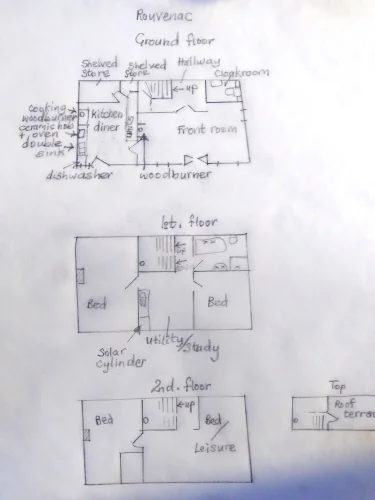 Rouvenac
Ground floor
Shelved Store
Shelved Store
Hallway
Cloakroom
← up
Cooking woodburner
ceramic hob
+ oven
double sink
Kitchen diner
units
Front room
dishwasher
woodburner
1st. floor
up
Bed
Bed
Solar cylinder
Utility/Study
2nd. floor
Bed
← up
Bed
Leisure
Top
Roof